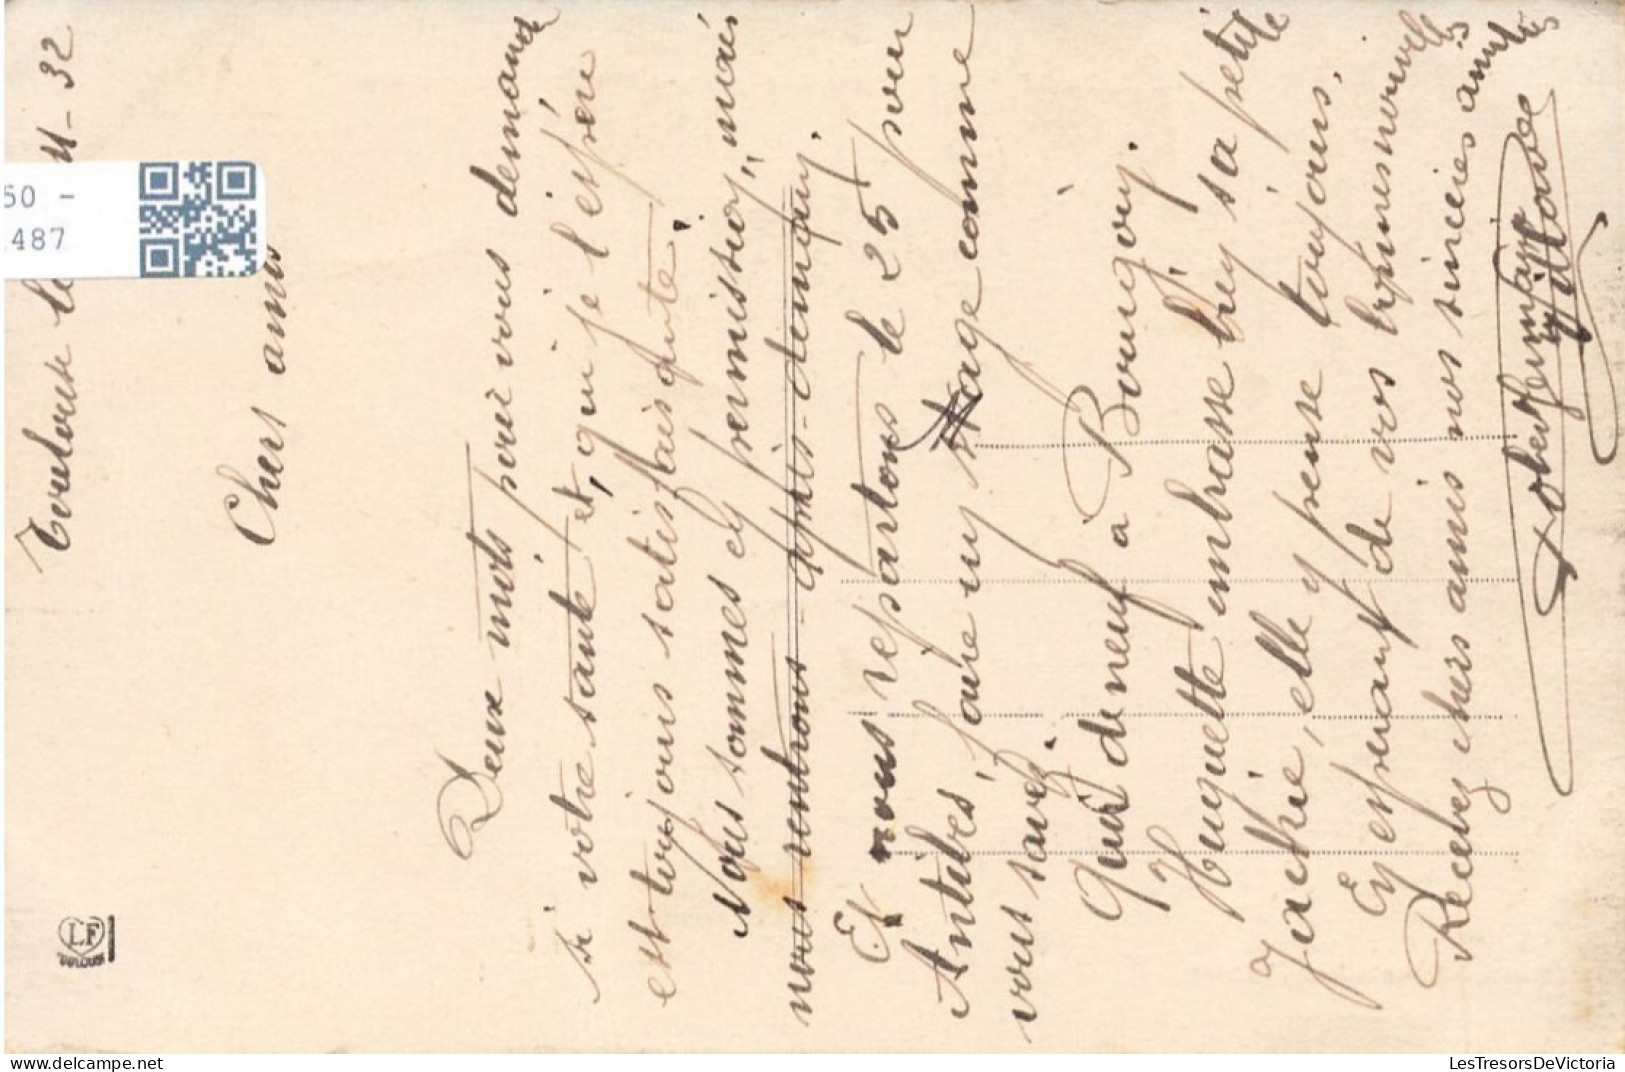 Toulouse le 11-32
Chers amis
Deux mots pour vous demander
si votre santé et, qui je l'espère
est toujours satisfaisante.
Nous sommes en permission, mais
nous rentrons après-demain.
Et nous repartons le 25 pour
Antibes, faire un stage comme
vous savez.
Quoi de neuf à Bourgoin.
Huguette embrasse bien sa petite
Jackie, elle y pense toujours.
En espérant de vos bonnes nouvelles
Recevez chers amis nos sincères amitiés
LF
TOULOUSE
50 -
487
LesTresorsDeVictoria